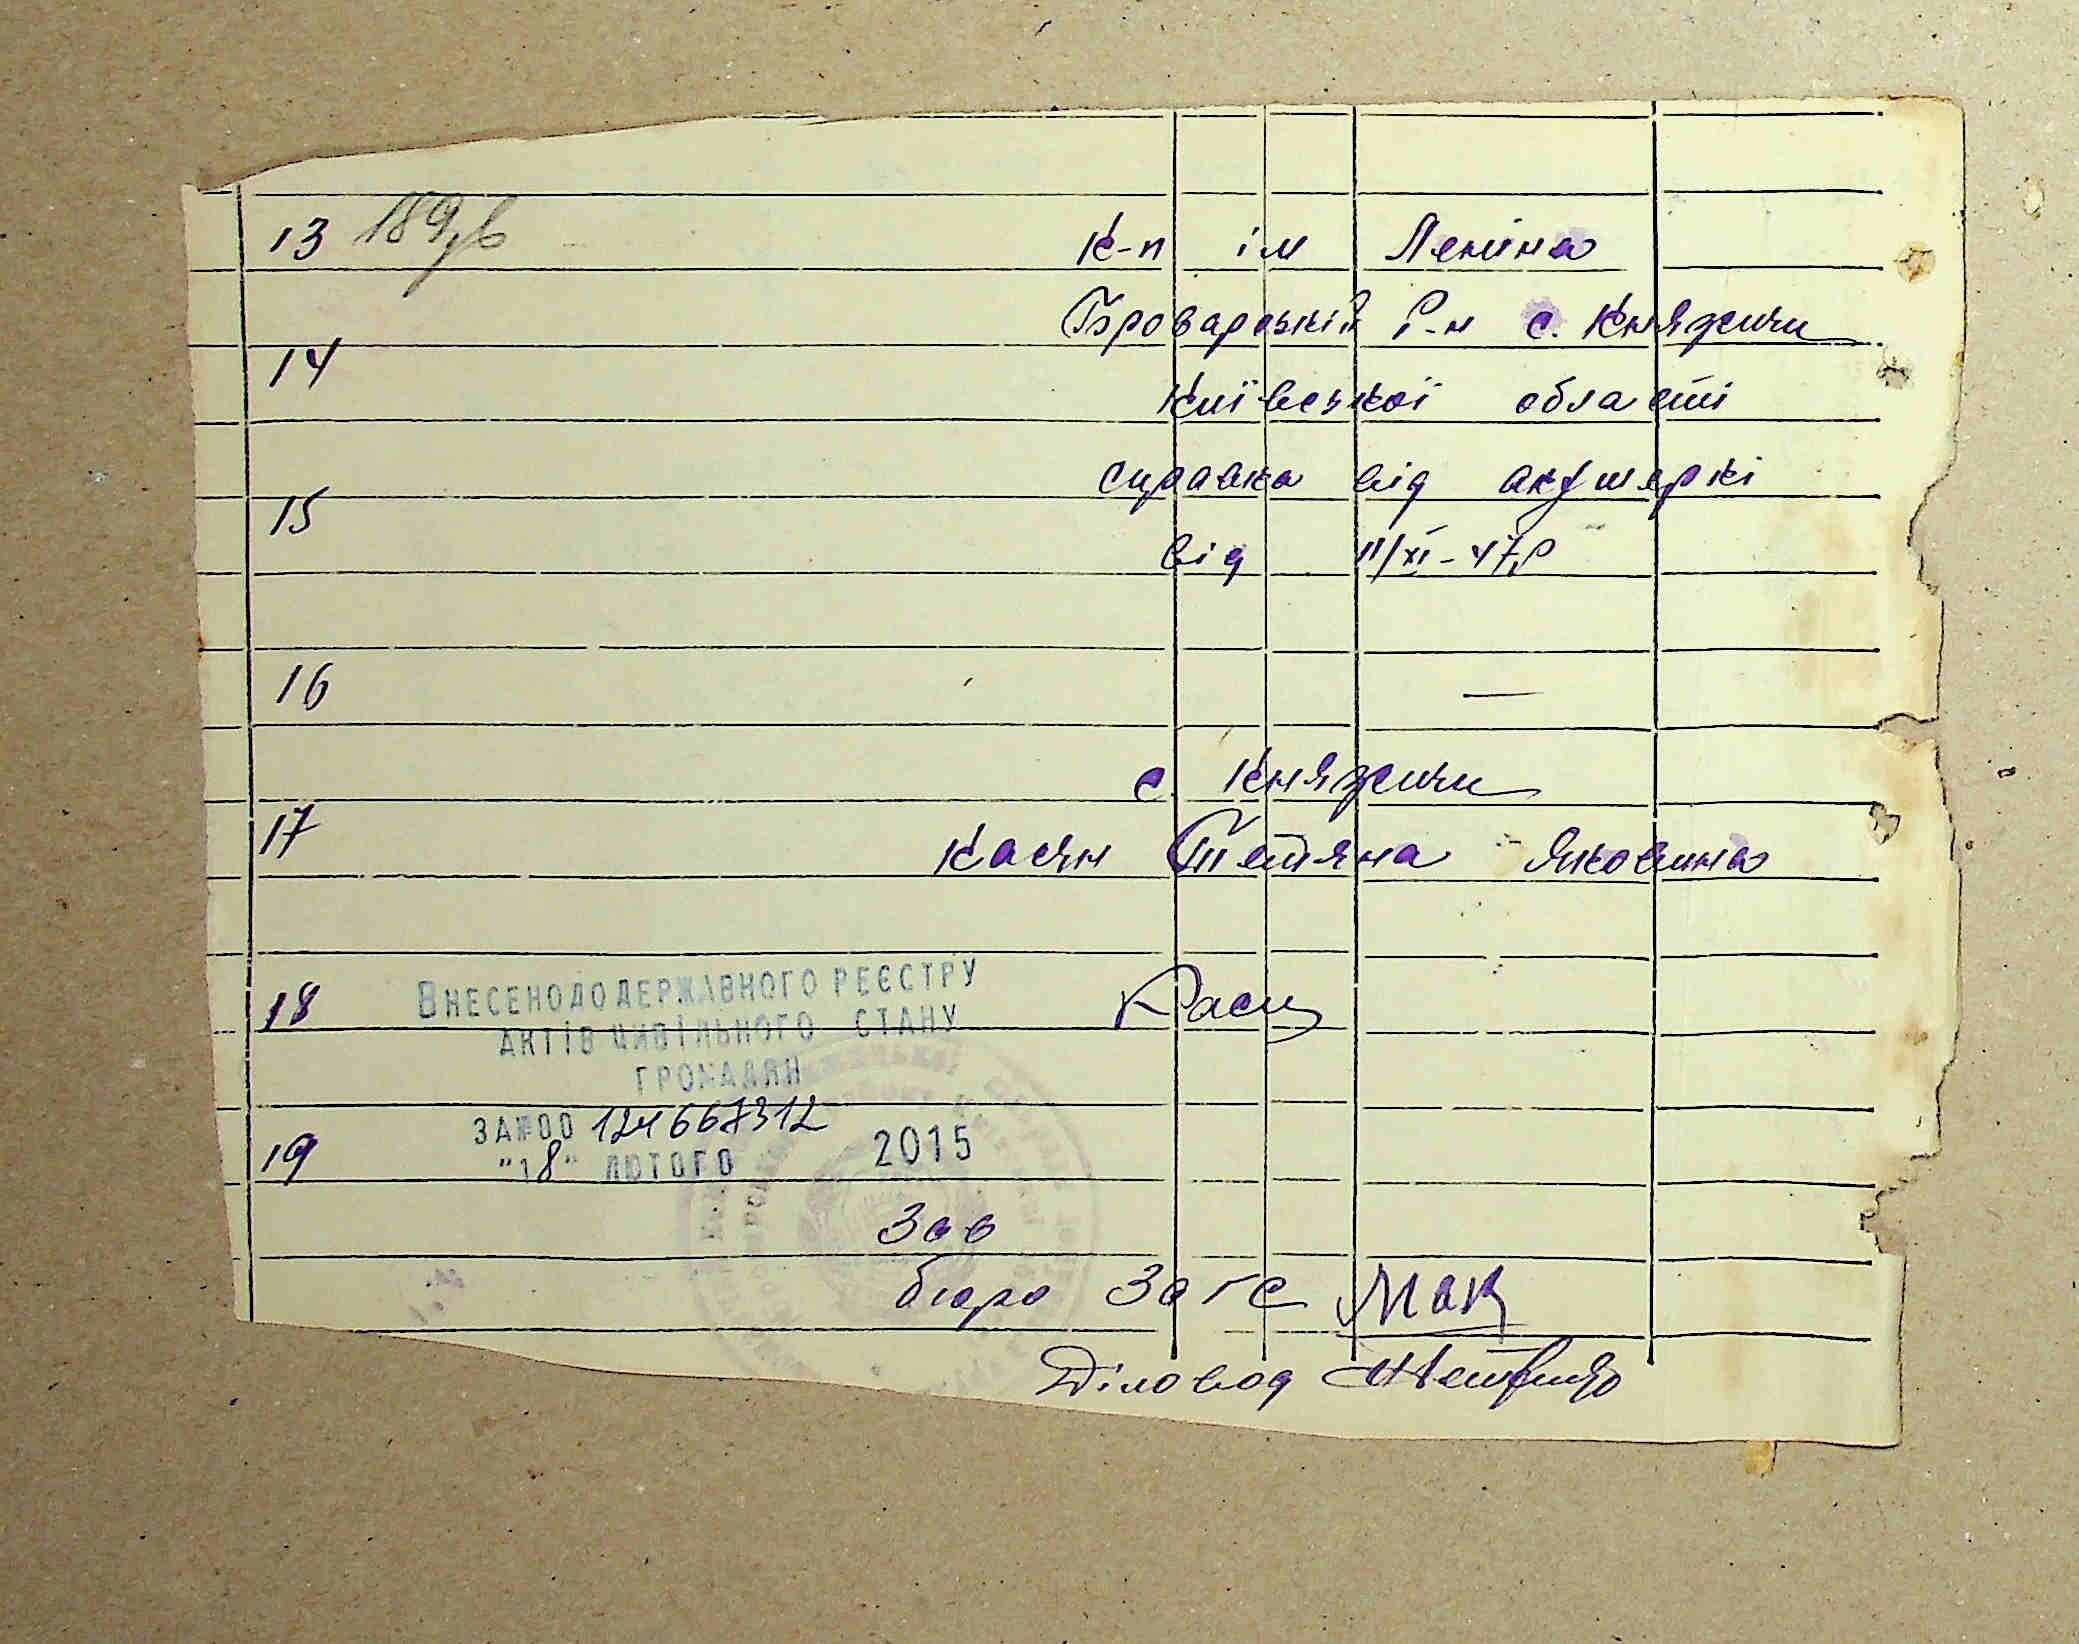 13 189
К-п ім Леніна
Броварський р-н с. Княжичи
14
Київської області
справка від акушеркі
15
від 11/XI-47р
16 —
с Княжичи
17
Касян Тетяна Яковлина
18
ВНЕСЕНО ДО ДЕРЖАВНОГО РЕЄСТРУ
АКТІВ ЦИВІЛЬНОГО СТАНУ
ГРОМАДЯН
ЗА №00 124667312
19
"18" ЛЮТОГО 2015
Зав
бюро Загс
Діловод